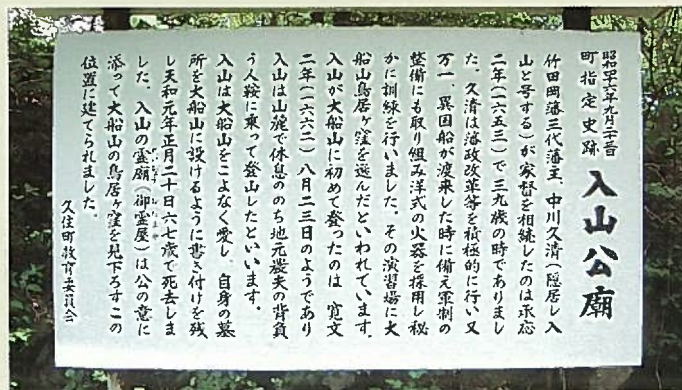 昭和卆六年九月二十一日
町指定史跡
入山公廟
竹田岡藩三代藩主、中川久清(隠居し入
山と号する)が家督を相続したのは承応
二年(一六五三)で三九歳の時でありまし
た。久清は藩政改革等を積極的に行い又
万一、異国船が渡来した時に備え軍制の
整備にも取り組み洋式の火器を採用し秘
かに訓練を行いました。その演習場に大
船山鳥居ヶ窪を選んだといわれています。
入山が大船山に初めて登ったのは 寛文
二年(一六六二) 八月二三日のようであり
入山は山麓で休息ののち地元農夫の背負
う人鞍に乗って登山したといいます。
入山は大船山をこよなく愛し、自身の墓
所を大船山に設けるように書き付けを残
し天和元年正月二十日六七歳で死去しま
した。入山の霊廟(御霊屋)は公の意に
添って大船山の鳥居ヶ窪を見下ろすこの
位置に建てられました。
久住町教育委員会